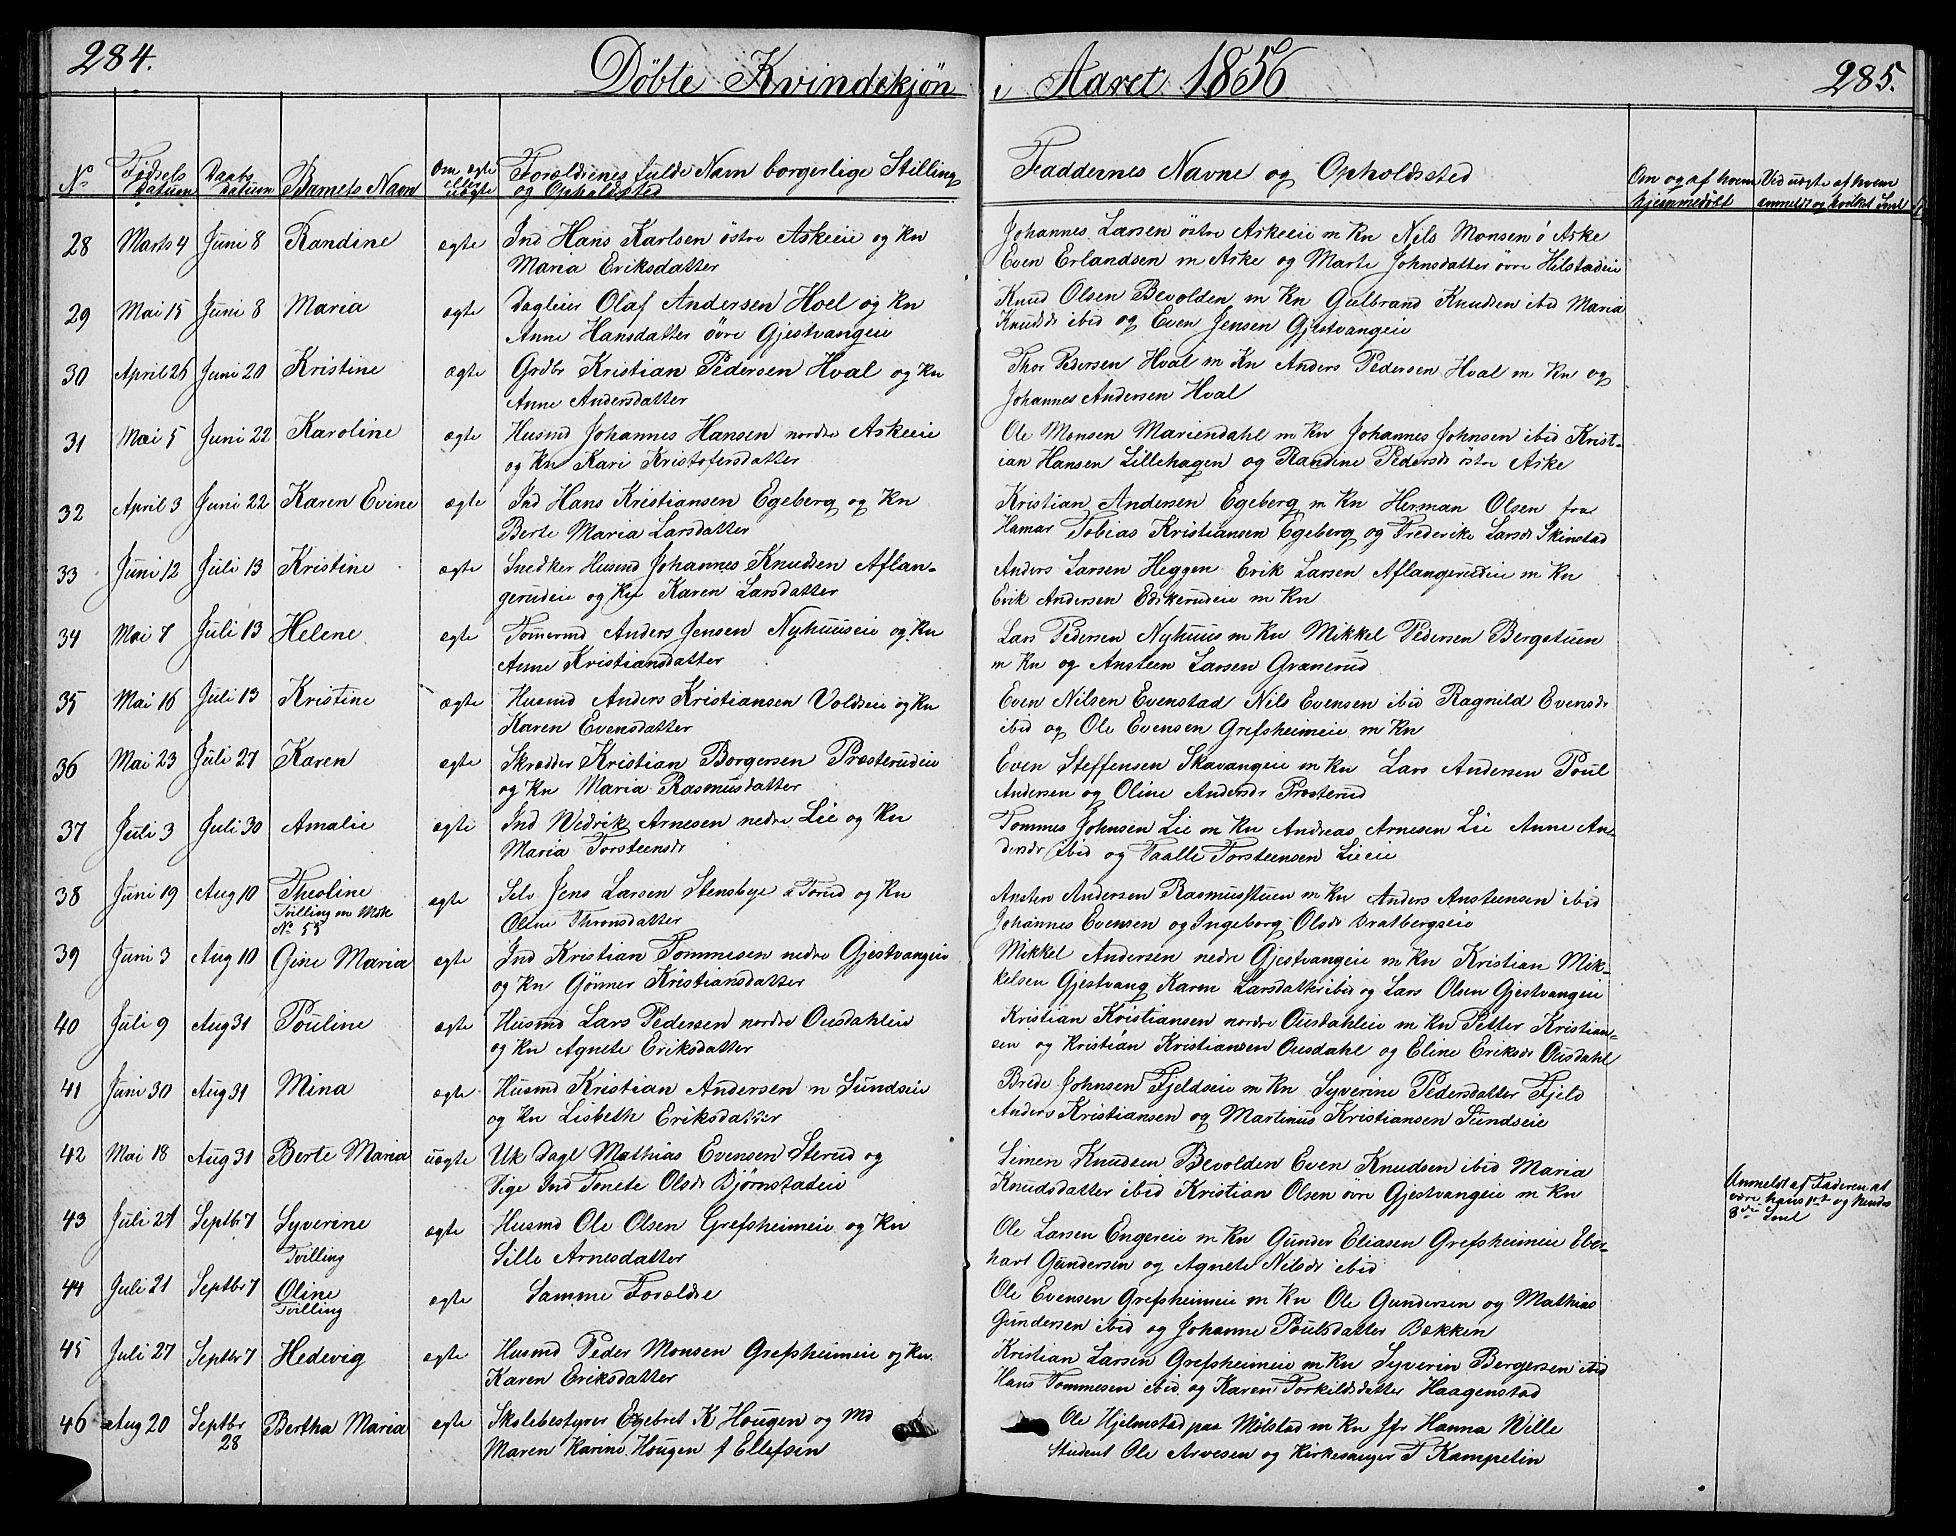 284.
Döbte Kvindekjøn
i Aaret 1856
285.
No
Fødsels datum
Daabs datum
Barnets Navn
Om ægte eller uægte
Forældrenes fulde Navn borgerlige Stilling
og Opholdsted
Faddernes Navne og Opholdssted
Om og af hvem hjemmedøbt
Ved uægte af hvem anmeldt og hvilket Leul
28 Marts 4 Juni 8 Randine ægte Ind Hans Karlsen östre Askeeie og Kn
Maria Eriksdatter
Johannes Larsen östre Askeeie m Kn Nils Monsen ö Aske
Even Erlandsen m Aske og Marte Johnsdatter övre Hilstadeie
29 Mai 15 Juni 8 Maria ægte Dagleier Olaf Andersen Hoel og Kn
Anne Hansdatter övre Gjestvangeie
Knud Olsen Bevolden m Kn Gulbrand Knudsen ibid Maria
Knudsdr ibid og Even Jensen Gjestvangeie
30 April 26 Juni 20 Kristine ægte Grdbr Kristian Pedersen Hval og Kn
Anne Andersdatter
Thor Pedersen Hval m Kn Anders Pedersen Hval m Kn og
Johannes Andersen Hval
31 Mai 5 Juni 22 Karoline ægte Husmd Johannes Hansen nordre Askeeie
og Kn Kari Kristofersdatter
Ole Monsen Mariendahl m Kn Johannes Johnsen ibid Krist-
ian Hansen Lillehagen og Randine Pedersdr östre Aske
32 April 3 Juni 22 Karen Evine ægte Ind Hans Kristiansen Egeberg og Kn
Berte Maria Larsdatter
Kristian Andersen Egeberg m Kn Herman Olsen fra
Hamar Tobias Kristiansen Egeberg og Frederike Larsdr Skinstad
33 Juni 12 Juli 13 Kristine ægte Snedker Husmd Johannes Knudsen Aflan-
gerudeie og Kn Karen Larsdatter
Anders Larsen Heggen Erik Larsen Aflangerudeie m Kn
Erik Andersen Edskerudeie m Kn
34 Mai 7 Juli 13 Helene ægte Tömermd Anders Jensen Nyhuuseie og Kn
Anne Kristiansdatter
Lars Pedersen Nyhuus m Kn Mikkel Pedersen Bergstuen
m Kn og Ansteen Larsen Granerud
35 Mai 16 Juli 13 Kristine ægte Husmd Anders Kristiansen Voldseie og Kn
Karen Evensdatter
Even Nilsen Evenstad Nils Evensen ibid Ragnild Evensdr
ibid og Ole Evensen Grefsheimeie m Kn
36 Mai 23 Juli 27 Karen ægte Skrædder Kristian Borgersen Prosterudeie
og Kn Maria Rasmusdatter
Even Steffensen Skavangeie m Kn Lars Andersen Poul
Andersen og Oline Andersdr Prosterud
37 Juli 3 Juli 30 Amalie ægte Ind Wedrik Arnesen nedre Lie og Kn
Maria Torsteensdr
Tommes Johnsen Lie m Kn Andreas Arnesen Lie Anne An-
dersdr ibid og Taalle Torsteensen Lieeie
38 Juni 19 Aug 10 Theoline Tvilling m Msk No 55 ægte Selv Jens Larsen Stensbye a Torud og Kn
Oline Thronsdatter
Ansten Andersen Rasmusstuen m Kn Anders Ansteensen ibid
Johannes Evensen og Ingeborg Olsdr Bratbergseie
39 Juni 3 Aug 10 Gine Maria ægte Ind Kristian Tommesen nedre Gjestvangeie
og Kn Gönner Kristiansdatter
Mikkel Andersen nedre Gjestvangeie m Kn Kristian Mik-
kelsen Gjestvang Karen Larsdatter ibid og Lars Olsen Gjestvangeie
40 Juli 9 Aug 31 Pouline ægte Husmd Lars Pedersen nordre Ousdahleie
og Kn Agnete Eriksdatter
Kristian Kristiansen nordre Ousdahleie m Kn Petter Kristian-
sen og Kristian Kristiansen Ousdahl og Eline Eriksdr Ousdahl
41 Juni 30 Aug 31 Mina ægte Husmd Kristian Andersen n Sundseie
og Kn Lisbeth Eriksdatter
Brede Johnsen Fjeldseie m Kn Syverine Pedersdatter Fjeld
Anders Kristiansen og Martinus Kristiansen Sundseie
42 Mai 18 Aug 31 Berte Maria uægte Uk Dagl Mathias Evensen Sterud og
Pige Ind Tonete Olsdr Bjørnstadeie
Simen Knudsen Bevolden Even Knudsen ibid Maria
Knudsdatter ibid Kristian Olsen övre Gjestvangeie m Kn
Anmeldt af Faderen at
være hans 1st og hendes
3die Leul
43 Juli 21 Septbr 7 Syverine Tvilling ægte Husmd Ole Olsen Grefsheimeie og Kn
Sille Arnesdatter
Ole Larsen Engereie m Kn Gunder Eliasen Grefsheimeie Eber-
hart Gundersen og Agnete Nilsdr ibid
44 Juli 21 Septbr 7 Oline Tvilling ægte Samme Forældre
Ole Evensen Grefsheimeie m Kn Ole Gundersen og Mathias
Gundersen ibid og Johanne Poulsdatter Bækken
45 Juli 27 Septbr 7 Hedevig ægte Husmd Peder Monsen Grefsheimeie og Kn
Karen Eriksdatter
Kristian Larsen Grefsheimeie m Kn Syverin Bergersen ibid
Hans Tommesen ibid og Karen Torkildsdatter Haagenstad
46 Aug 20 Septbr 28 Bertha Maria ægte Skolebestyrer Engebret K Hougen og Md
Maren Karine Hougen f Ellefsen
Ole Hjelmstad paa Mölstad m Kn Jfr Hanna Wille
Student Ole Arvesen og Kirkesanger T Kampelin